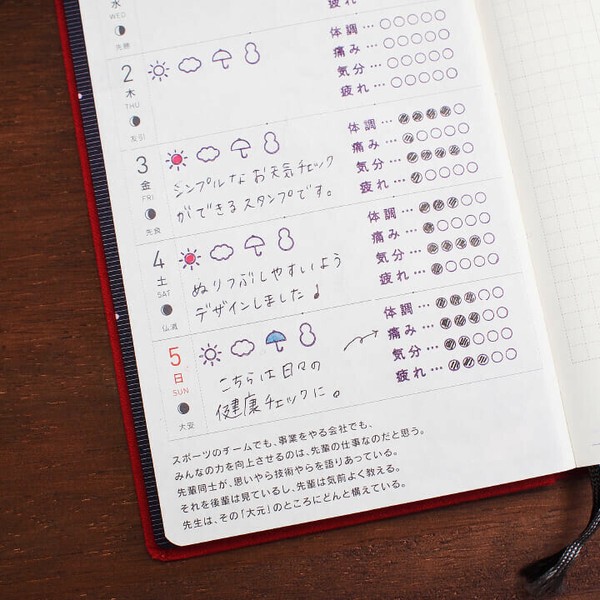 水
WED
先勝
疲れ…
2
木
THU
友引
体調…
痛み…
気分…
疲れ…
3
金
FRI
先負
シンプルなお天気チェック
ができるスタンプです。
体調…
痛み…
気分…
疲れ…
4
土
SAT
仏滅
ぬりつぶしやすいよう
デザインしました♪
体調…
痛み…
気分…
疲れ…
5
日
SUN
大安
こちらは日々の
健康チェックに。
体調…
痛み…
気分…
疲れ…
スポーツのチームでも、事業をやる会社でも、
みんなの力を向上させるのは、先輩の仕事なのだと思う。
先輩同士が、思いやら技術やらを語りあっている。
それを後輩は見ているし、先輩は気前よく教える。
先生は、その「大元」のところにどんと構えている。